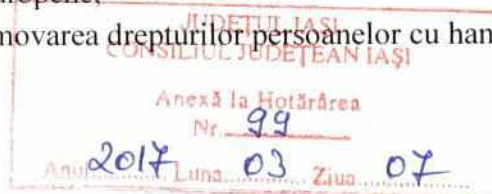 movarea drepturilor persoanelor cu han
JUDEȚUL IAȘI
CONSILIUL JUDEȚEAN IAȘI
Anexă la Hotărârea
Nr. 99
Anul 2017 Luna 03 Ziua 07